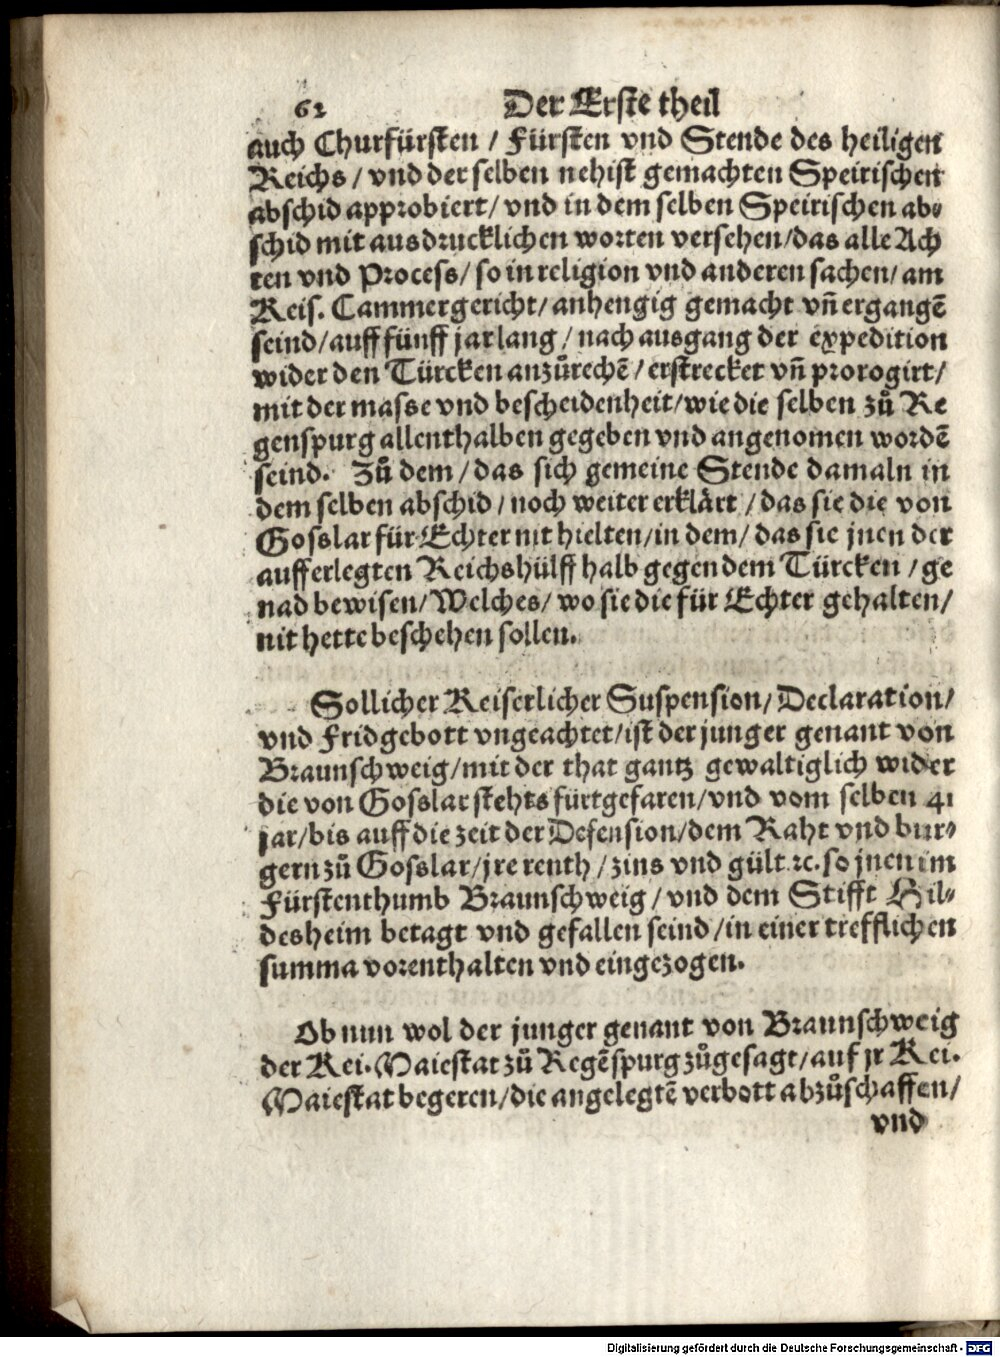 62 Der Erste theil
auch Churfürsten / Fürsten vnd Stende des heiligen
Reichs / vnd der selben nehist gemachten Speirischen
abschid approbiert / vnd in dem selben Speirischen ab-
schid mit ausdrucklichen worten versehen / das alle Ach
ten vnd Process / so in religion vnd anderen sachen / am
Keis. Cammergericht / anhengig gemacht vñ ergangẽ
seind / auff fünff jar lang / nach ausgang der expedition
wider den Türcken anzůrechẽ / erstrecket vñ prorogirt /
mit der masse vnd bescheidenheit / wie die selben zů Re
genspurg allenthalben gegeben vnd angenomen wordẽ
seind. Zů dem / das sich gemeine Stende damaln in
dem selben abschid / noch weiter erklärt / das sie die von
Gosslar für Echter nit hielten / in dem / das sie jnen der
aufferlegten Reichshülff halb gegen dem Türcken / ge
nad bewisen / Welches / wo sie die für Echter gehalten /
nit hette beschehen sollen.
Sollicher Keiserlicher Suspension / Declaration /
vnd Fridgebott vngeachtet / ist der junger genant von
Braunschweig / mit der that gantz gewaltiglich wider
die von Gosslar stehts fürtgefaren / vnd vom selben 41
jar / bis auff die zeit der Defension / dem Raht vnd bur-
gern zů Gosslar / jre renth / zins vnd gült ꝛc. so jnen im
Fürstenthumb Braunschweig / vnd dem Stifft Hil-
desheim betagt vnd gefallen seind / in einer trefflichen
summa vorenthalten vnd eingezogen.
Ob nun wol der junger genant von Braunschweig
der Kei. Maiestat zů Regẽspurg zůgesagt / auf jr Kei.
Maiestat begeren / die angelegtẽ verbott abzůschaffen /
vnd
Digitalisierung gefördert durch die Deutsche Forschungsgemeinschaft - DFG